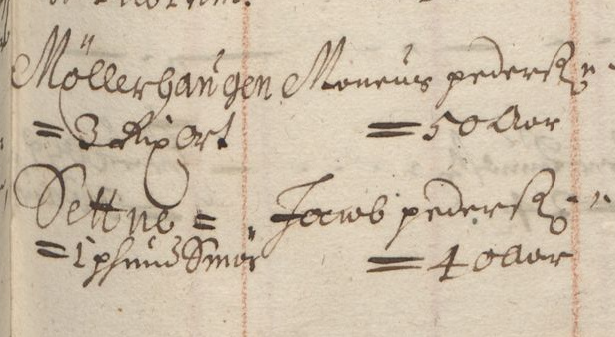 Möllerhaugen Moneus pederß:
= 3 Rix Ort = 50 Aar
Settne = Jacob pederß:
= 1 pfund Smör = 40 Aar